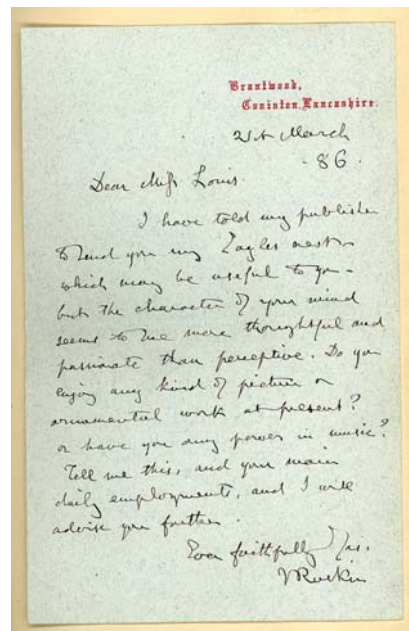 Brantwood,
Coniston, Lancashire.
21st March
86.
Dear Miss Louis
I have told my publisher
to send you my Eagles nest -
which may be useful to you -
but the character of your mind
seems to me more thoughtful and
passionate than perceptive. Do you
enjoy any kind of picture or
ornamental work at present?
or have you any power in music?
Tell me this, and your main
daily employments, and I will
advise you further.
Ever faithfully Yrs.
JRuskin